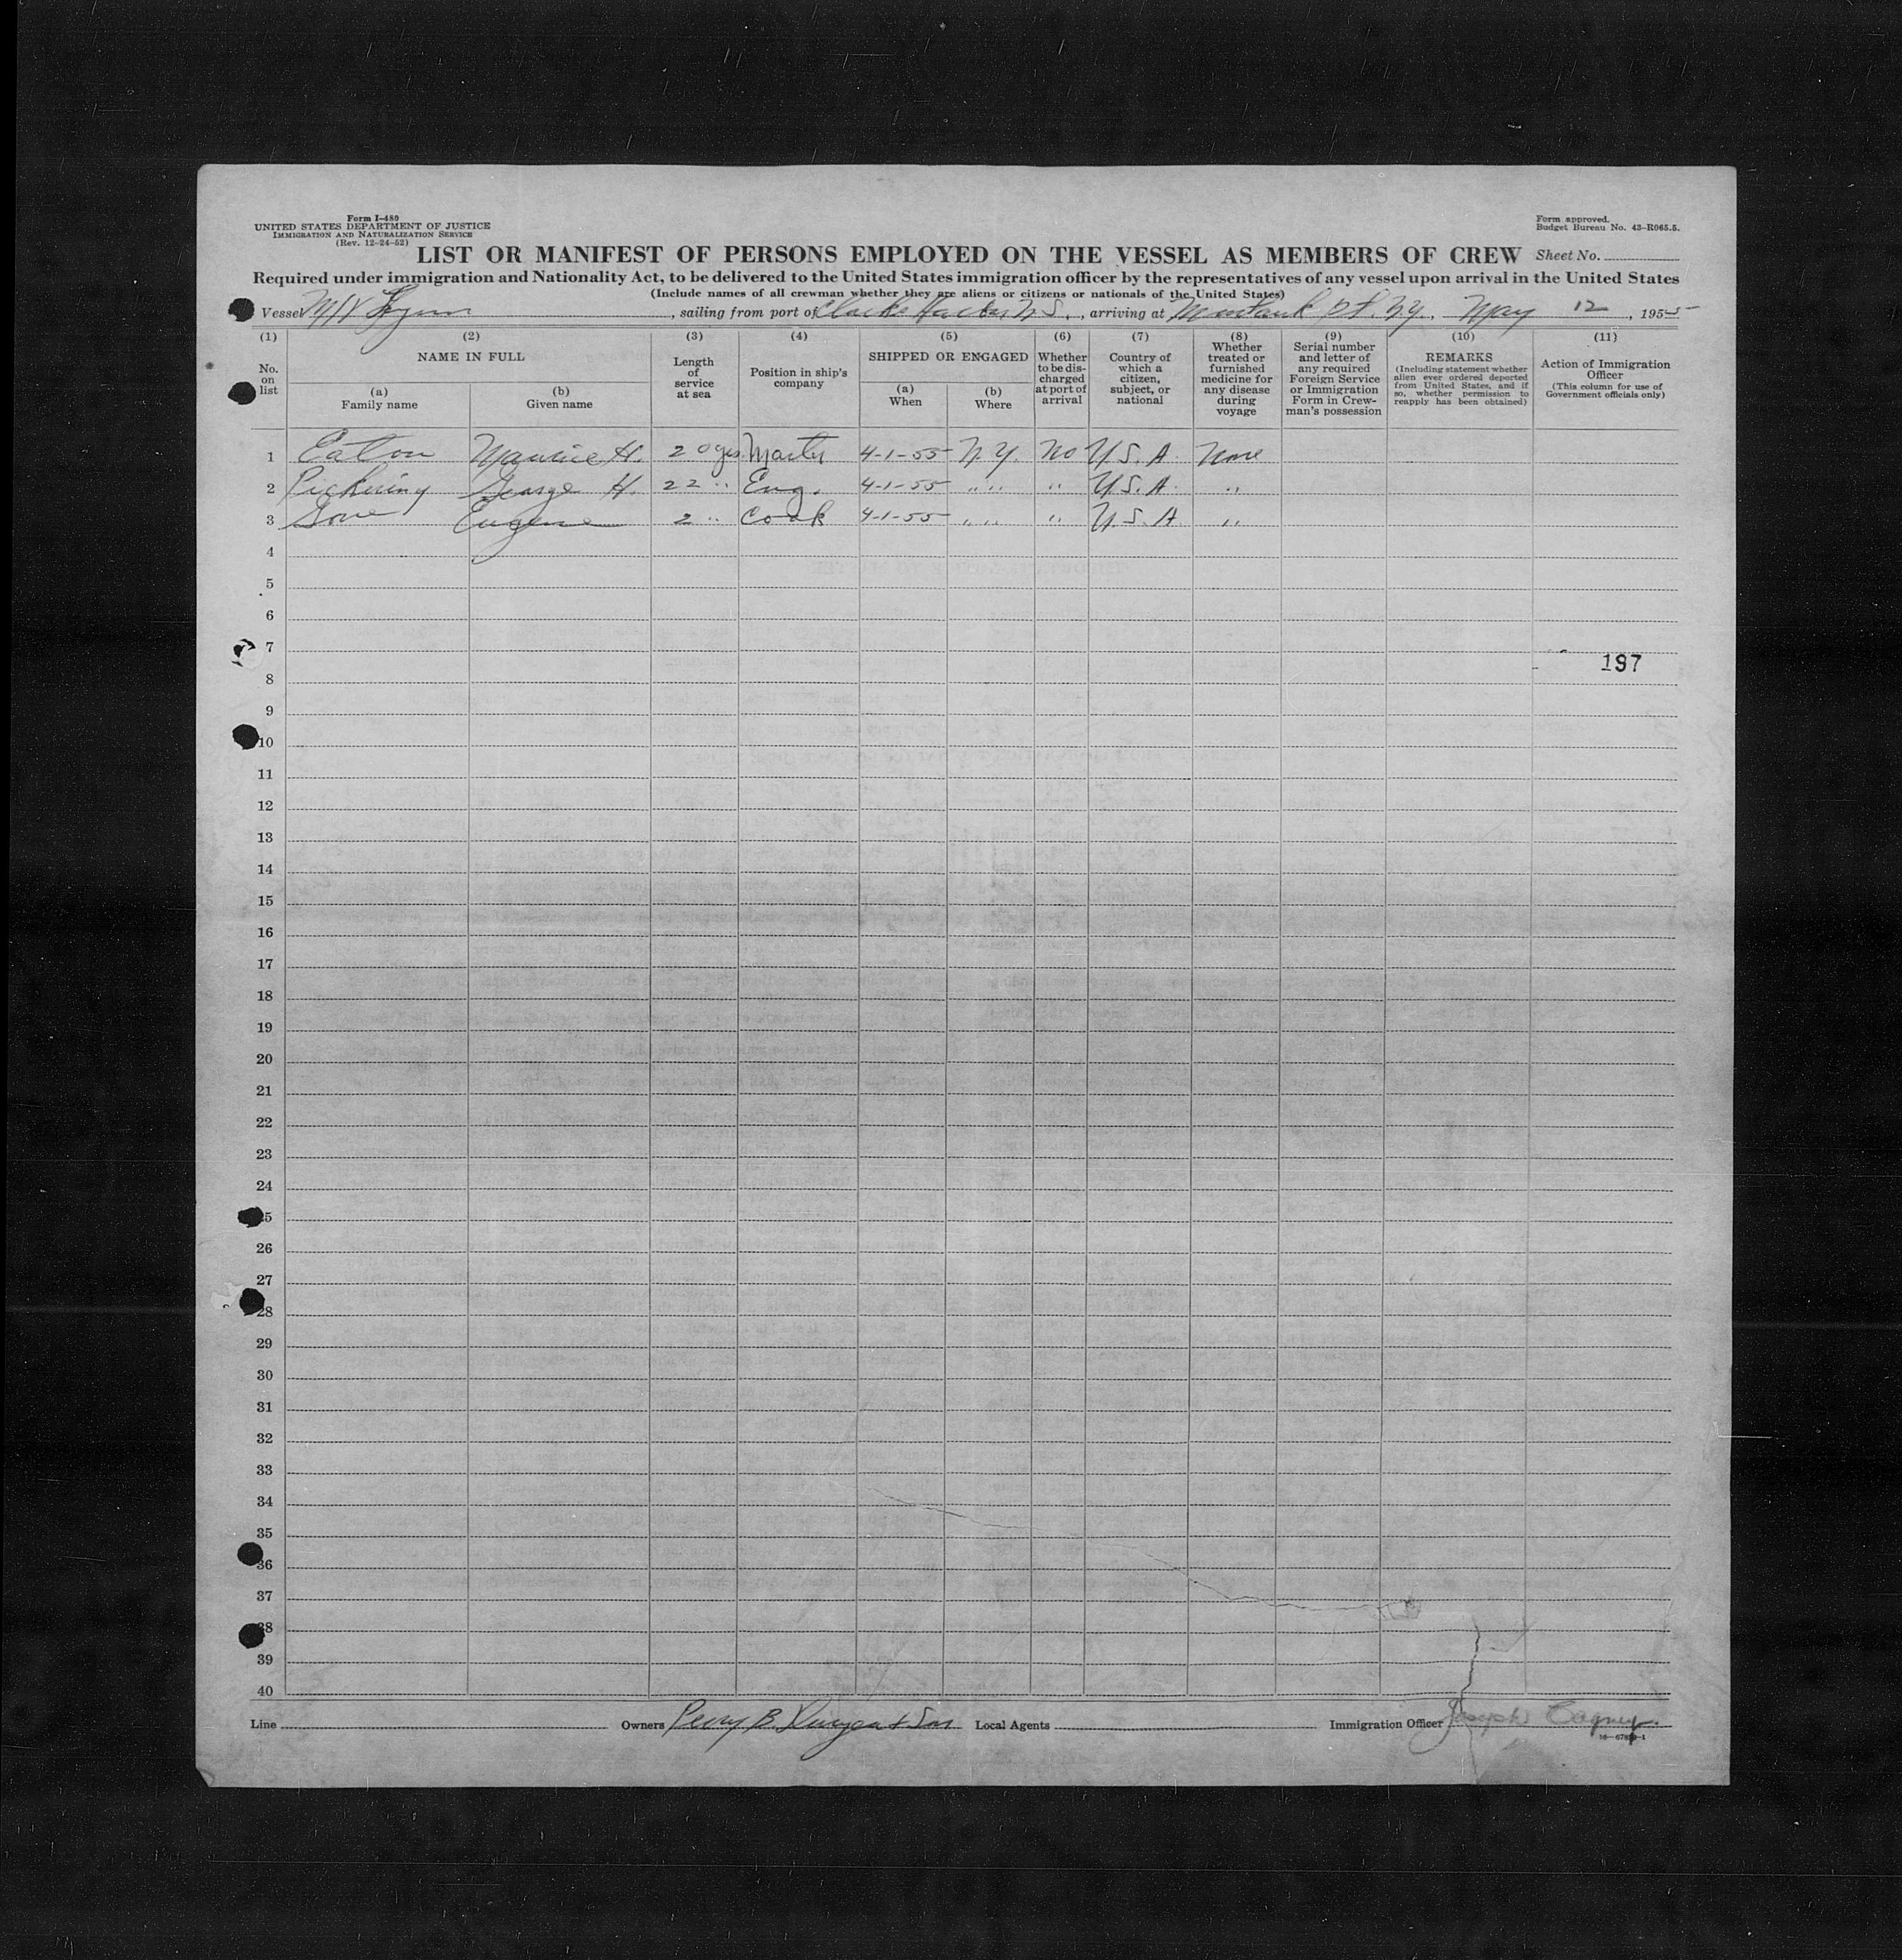 Form I-480
UNITED STATES DEPARTMENT OF JUSTICE
IMMIGRATION AND NATURALIZATION SERVICE
(Rev. 12-24-52)
Form approved.
Budget Bureau No. 43-R065.5.
LIST OR MANIFEST OF PERSONS EMPLOYED ON THE VESSEL AS MEMBERS OF CREW Sheet No.
Required under immigration and Nationality Act, to be delivered to the United States immigration officer by the representatives of any vessel upon arrival in the United States
(Include names of all crewman whether they are aliens or citizens or nationals of the United States)
Vessel M/V , sailing from port of Clarks Harbor N.S. , arriving at Montauk Pt. N.Y. , May 12 , 1955
(1) No. on list
(2) NAME IN FULL
(a) Family name
(b) Given name
(3) Length of service at sea
(4) Position in ship's company
(5) SHIPPED OR ENGAGED
(a) When
(b) Where
(6) Whether to be dis-charged at port of arrival
(7) Country of which a citizen, subject, or national
(8) Whether treated or furnished medicine for any disease during voyage
(9) Serial number and letter of any required Foreign Service or Immigration Form in Crew-man's possession
(10) REMARKS (Including statement whether alien ever ordered deported from United States, and if so, whether permission to reapply has been obtained)
(11) Action of Immigration Officer (This column for use of Government officials only)
1 Eaton Maurice H. 20 yrs Master 4-1-55 N.Y. No U.S.A. None
2 Pickering George H. 22 " Eng. 4-1-55 " " " U.S.A. "
3 Gove Eugene 2 " Cook 4-1-55 " " " U.S.A. "
4
5
6
7
197
8
9
10
11
12
13
14
15
16
17
18
19
20
21
22
23
24
25
26
27
28
29
30
31
32
33
34
35
36
37
38
39
40
Line Owners Perry B. & Son Local Agents Immigration Officer Joseph Cagney.